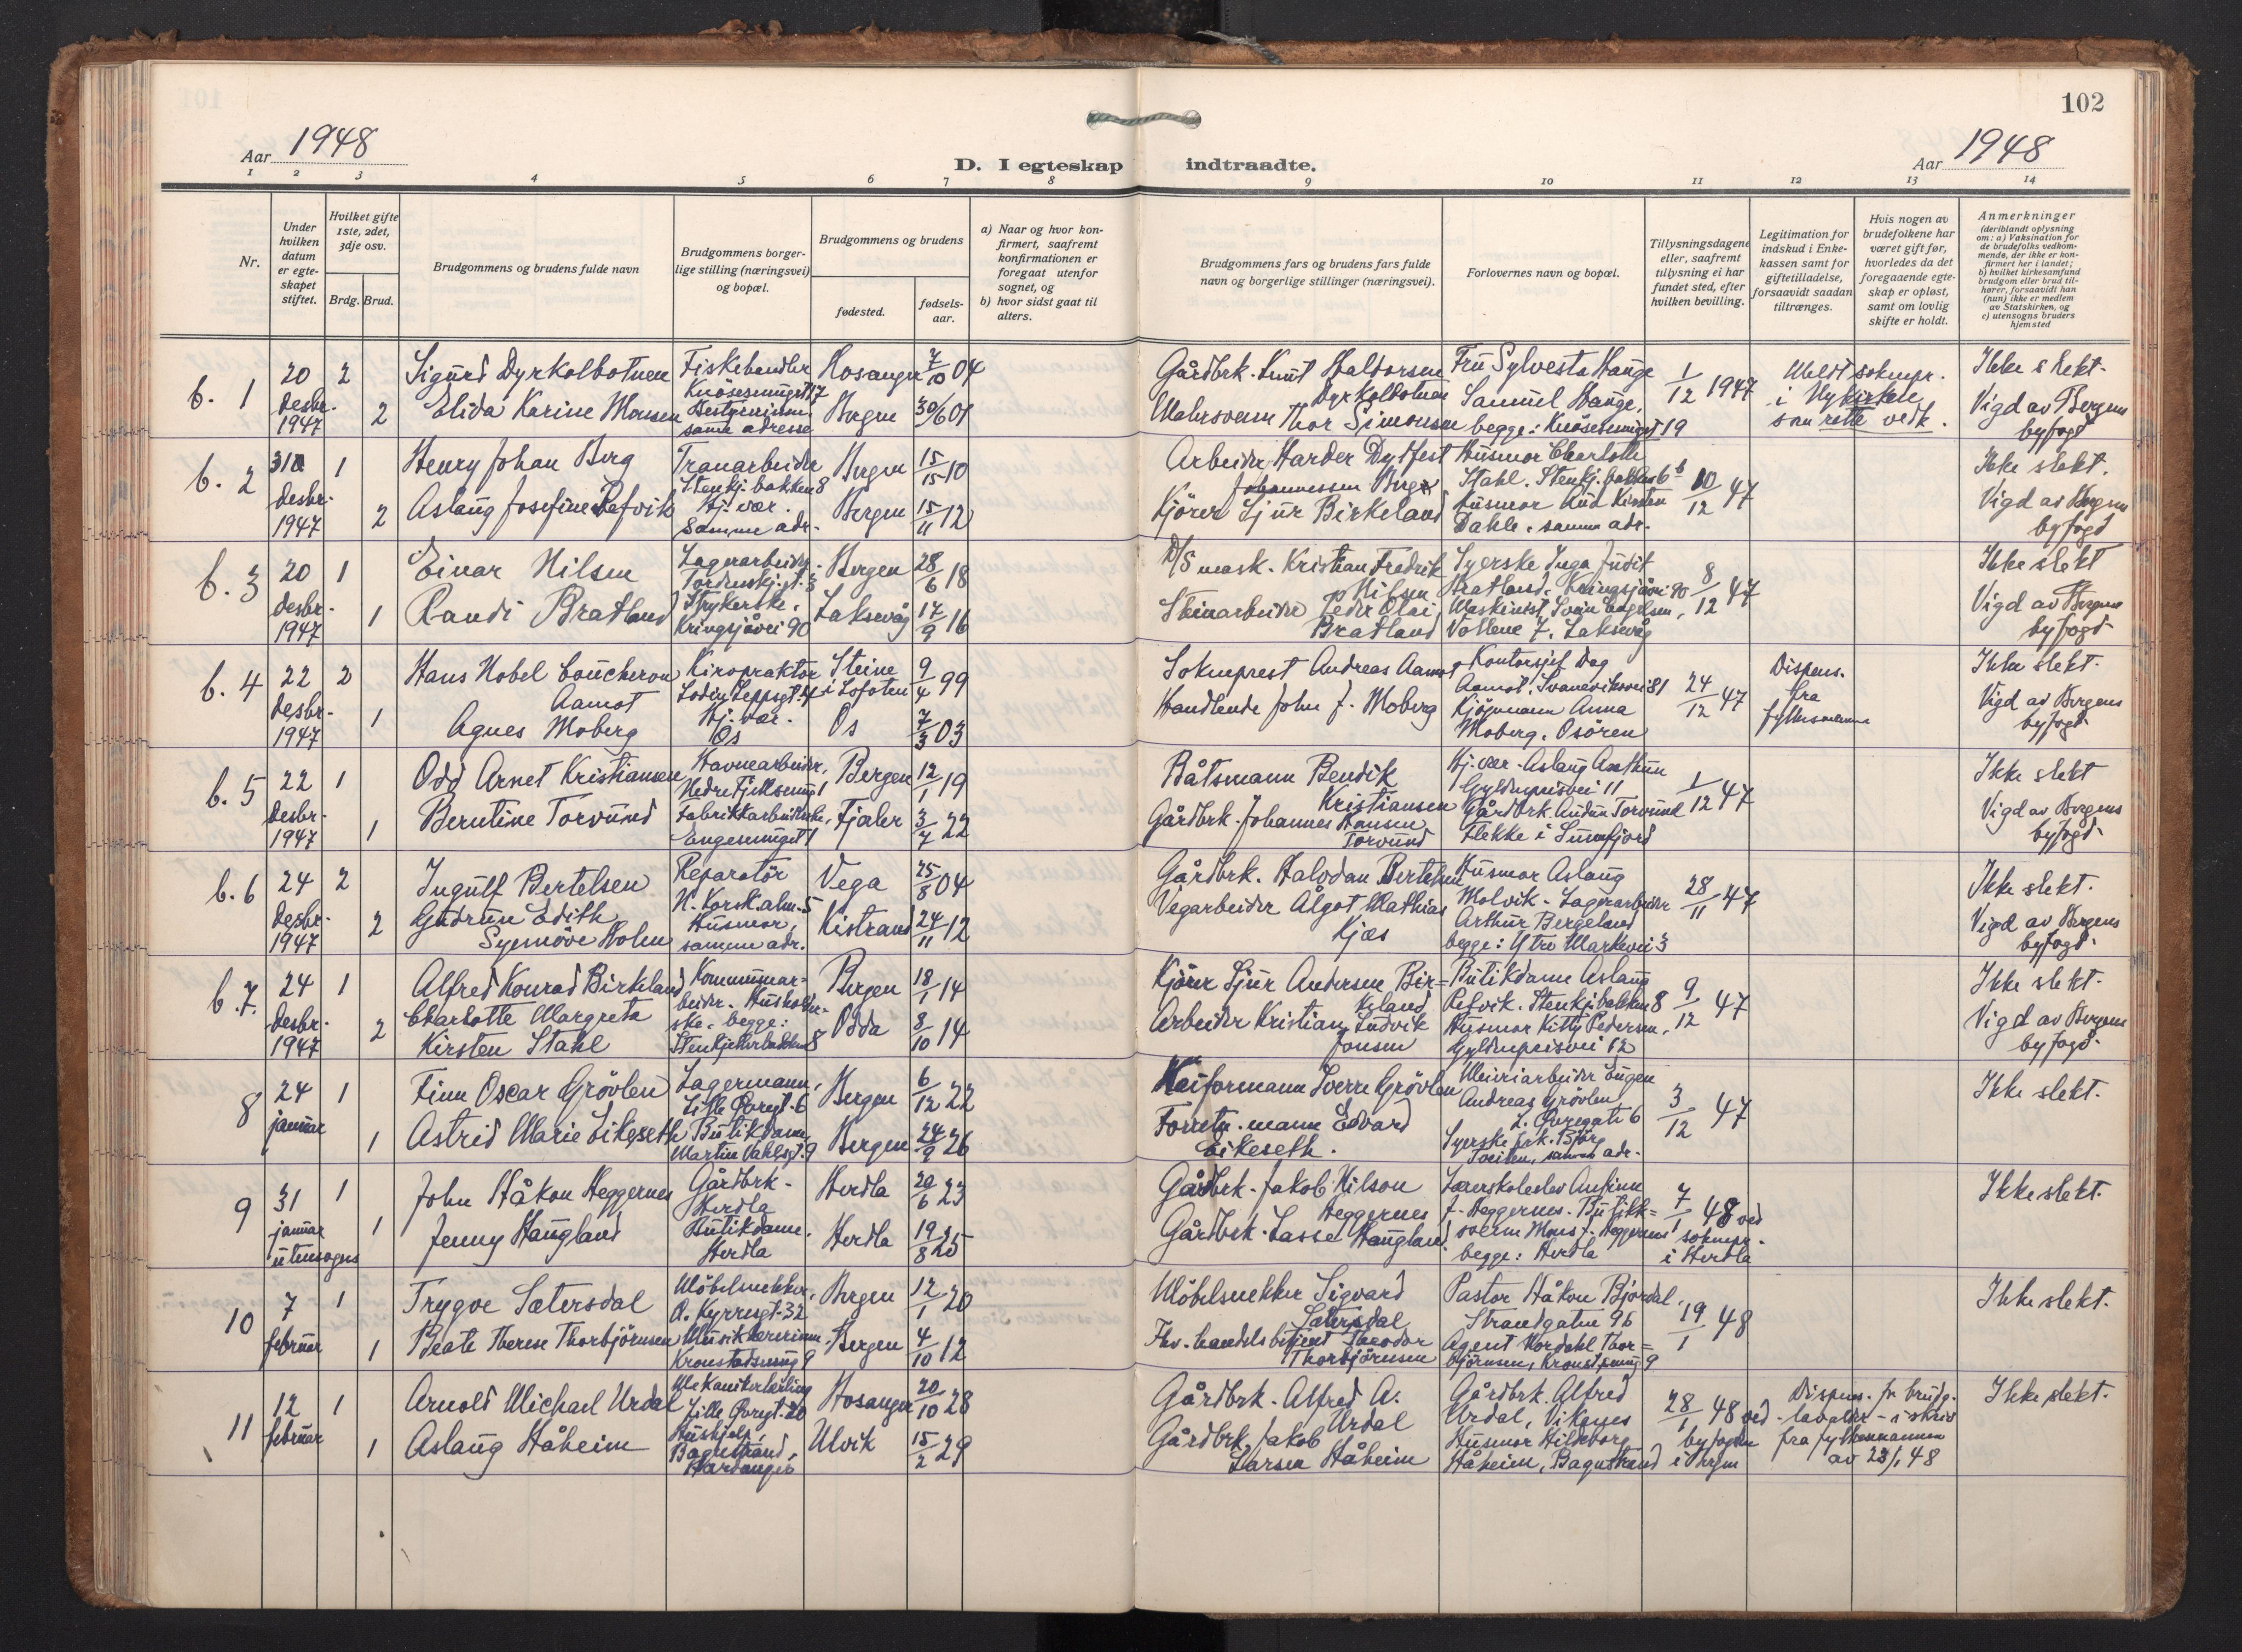 102
Aar 1948
D. I egteskap indtraadte.
Aar 1948
1 2 3 4 5 6 7 8 9 10 11 12 13 14
Nr.
Under hvilken datum er egteskapet stiftet.
Hvilket gifte 1ste, 2det, 3dje osv.
Brdg. Brud.
Brudgommens og brudens fulde navn
Brudgommens borgerlige stilling (næringsvei) og bopæl.
Brudgommens og brudens
fødested.
fødselsaar.
a) Naar og hvor konfirmert, saafremt konfirmationen er foregaat utenfor sognet, og
b) hvor sidst gaat til alters.
Brudgommens fars og brudens fars fulde navn og borgerlige stillinger (næringsvei).
Forlovernes navn og bopæl.
Tillysningsdagene eller, saafremt tillysning ei har fundet sted, efter hvilken bevilling.
Legitimation for indskud i Enkekassen samt for giftetilladelse, forsaavidt saadan tiltrænges.
Hvis nogen av brudefolkene har været gift før, hvorledes da det foregaaende egteskap er opløst, samt om lovlig skifte er holdt.
Anmerkninger
(deriblandt oplysning om: a) Vaksination for de brudefolks vedkommende, der ikke er konfirmert her i landet; b) hvilket kirkesamfund brudgom eller brud tilhører, forsaavidt han (hun) ikke er medlem av Statskirken, og c) utensogns bruders hjemsted
b. 1
20 Desbr. 1947
2
2
Sigurd Dyrkolbotnen
Elida Karine Monsen
Fiskehandler
Knösesmuget 17
Bestyrerinne.
same adresse
Hosanger 7/10 04
Bergen 30/6 01
Gårdbrk. Knut Haldorsen
Dyrkolbotnen
Thor Simonsen
Fru Sylvesta Hauge
Samuel Hauge,
begge: Knösesmuget 19
1/12 1947
Uteldt soknepr.
i Nykirken
som rette vedk.
Ikke slekt.
Vigd av Bergens
byfogd
b. 2
31 Desbr. 1947
1
2
Henry Johan Berg
Aslaug Josefine Refvik
Tranarbeider
Stenkj. bakken 8
Hj. vær.
Samme adr.
Bergen 15/10
Bergen 15/11 12
Arbeider Harder Dydfest
Johannessen Berg
Kjörer Sjur Birkeland
Husmor Charlotte
Stahl. Stenkj. bakken 6
Husmor Aud Kirsten
Dahle. samme adr.
10/12 47
Ikke slekt.
Vigd av Bergens
byfogd
b. 3
20 Desbr. 1947
1
1
Einar Nilsen
Randi Bratland
Lagerarbeider.
Tordenskj. gt. 3
Strykerske.
Kringsjåvei 90
Bergen 28/6 18
Laksevåg 17/9 16
D/S mask. Kristian Fredrik
Nilsen
Stenarbeider Peder Olai
Bratland
Syerske Inga Judit
Bratland. Kringsjåvei 90
Maskinist Svein Engelsen,
Vollene 7. Laksevåg
8/12 47
Ikke slekt
Vigd av Bergens
byfogd
b. 4
22 Desbr. 1947
2
1
Hans Nobel Coucheron
Aamot
Agnes Moberg
Kiropraktor
Lodin Leppsgt. 4
Hj. vær.
Os
Steine
i Lofoten 9/4 99
Os 7/3 03
Sokneprest Andreas Aamot
Handlende John J. Moberg
Kontorsjef Dag
Aamot. Svaneviksvei 81
Kjöpmann Anna
Moberg. Osören
24/12 47
Dispens.
fra
fylkesmann
Ikke slekt.
Vigd av Bergens
byfogd
b. 5
22 Desbr. 1947
1
1
Odd Arnet Kristiansen
Berntine Torvund
Havnearbeider,
Nedre Fjellsmug 1
Fabrikkarbeiderske,
Engesmuget 1
Bergen 12/1 19
Fjaler 3/7 22
Båtsmann Bendik
Kristiansen
Gårdbrk. Johannes Hansen
Torvund
Hj. vær. Aslaug
Gyldenprisvei 11
Gårdbrk. Audun Torvund
Flekke i Sunnfjord
1/12 47
Ikke slekt
Vigd av Bergens
byfogd
b. 6
24 Desbr. 1947
2
2
Ingulf Bertelsen
Gudrun Edith
Synnöve Holm
Reparatör
N. Korsk. alm. 5
Husmor,
samme adr.
Vega 25/8 04
Kistrand 24/11 12
Gårdbrk. Halvdan Bertelsen
Vegarbeider Algot Mathias
Kjæs
Husmor Aslaug
Molvik. Lagerarbeider
Arthur Bergeland
begge: Ytre Markevei 3
28/11 47
Ikke slekt.
Vigd av Bergens
byfogd
b. 7.
24 Desbr. 1947
1
2
Alfred Konrad Birkeland
Charlotte Margreta
Kirsten Stahl
Kommunear-
beider. Husholder-
ske. begge:
Stenkjellerbakken 8
Bergen 18/1 14
Odda 8/10 14
Kjörer Sjur Andersen Bir=
keland
Arbeider Kristian Ludvik
Jonsen
Butikdame Aslaug
Refvik. Stenkj. bakken 8
Husmor Kitty Pedersen,
Gyldenprisvei 12
9/12 47
Ikke slekt.
Vigd av Bergens
byfogd
8
24 januar
1
1
Finn Oscar Grövlen
Astrid Marie Eikeseth
Lagermann,
Lille Övregt. 6
Butikdame
Martin Vahlsgt. 9
Bergen 6/12 22
Bergen 24/9 26
Kaiformann Sverre Grövlen
Forretn. mann Edvard
Eikeseth.
Meieriarbeider Eugen
Andreas Grövlen
L. Övregate 6
Syerske frk. Björg
samme adr.
3/12 47
Ikke slekt.
9
31 januar utensogns
1
1
John Håkon Heggernes
Jenny Haugland
Gårdbrk.
Herdla
Butikdame.
Herdla
Herdla 20/6 23
Herdla 19/8 25
Gårdbrk. Jakob Nilson
Heggernes
Gårdbrk. Lasse Haugland
Lærerskoleelev Anfinn
J. Heggernes. Butikk=
svein Mons J. Heggernes
begge: Herdla
7/1 48 ved
soknepr.
i Herdla
Ikke slekt.
10
7 februar
1
1
Trygve Sætersdal
Beate Therese Thorbjörnsen
Möbelsnekker,
O. Kyrresgt. 32
Musiklærerinne.
Kronstadsmug 9
Bergen 12/1 20
Bergen 4/10 12
Möbelsnekker Sigvard
Sætersdal
Fhv. handelsbetjent Theodor
Thorbjörnsen
Pastor Håkon Bjordal,
Strandgaten 96
Agent Nordahl Thor=
björnsen, Kronst. smug 9
19/1 48
Ikke slekt.
11
12 februar
1
1
Arnold Michael Urdal
Aslaug Håheim
Mekanikerlærling
Lille Övregt. 20
Hushjelp,
Bagnstrand,
Hardanger
Hosanger 20/10 28
Ulvik 15/2 29
Gårdbrk. Alfred A.
Urdal
Gårdbrk. Jakob
Larsen Håheim
Gårdbrk. Alfred
Urdal, Vikanes
Husmor Hildeborg
Håheim, Bagnstrand
28/1 48 ved
byfogden
i Bergen
Dispens. for brudg.
lavalder - i skriv
fra fylkesmannen
av 23/1 48
Ikke slekt.